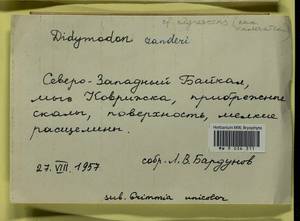 Didymodon zanderi
Северо-Западный Байкал,
мыс Коврижка, прибрежные
скалы, поверхность, мелкие
расщелины.
Herbarium MW, Bryophytes
27.VIII.1957
собр. Л.В. Бардунов
sub. Grimmia unicolor